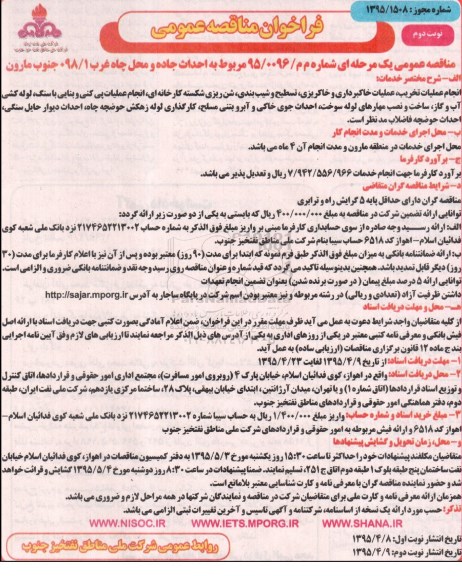 شماره مجوز: ۱۳۹۵/۱۵۰۸
فراخوان مناقصه عمومی
نوبت دوم
مناقصه عمومی یک مرحله ای شماره م م/۹۵/۰۰۹۶ مربوط به احداث جاده و محل چاه غرب ۰۹۸/۱ جنوب مارون
الف- شرح مختصر خدمات:
انجام عملیات تخریب، عملیات خاکبرداری و خاکریزی، تسطیح و شیب بندی، شن ریزی شکسته کارخانه ای، انجام عملیات پی کنی و بنایی با سنگ، لوله کشی
آب و گاز، ساخت و نصب مهارهای لوله سوخت، احداث جوی خاکی و آبرو بتنی مسلح، کارگذاری لوله زهکش حوضچه چاه، احداث دیوار حایل سنگی،
احداث حوضچه فاضلاب مد نظر است.
ب- محل اجرای خدمات و مدت انجام کار
محل اجرای خدمات در منطقه مارون و مدت انجام آن ۴ ماه می باشد.
ج- برآورد کارفرما
برآورد کارفرما جهت انجام خدمات ۷/۹۴۲/۵۵۶/۹۶۶ ریال و تعدیل پذیر می باشد.
د- شرایط مناقصه گران متقاضی
مناقصه گران دارای حداقل پایه ۵ گرایش راه و ترابری
توانایی ارائه تضمین شرکت در مناقصه به مبلغ ۴۰۰/۰۰۰/۰۰۰ ریال که بایستی به یکی از دو صورت زیر ارائه گردد:
الف: ارائه رسید وجه صادره از سوی حسابداری کارفرما مبنی بر واریز مبلغ فوق الذکر به شماره حساب ۲۱۷۴۶۵۲۲۱۳۰۰۲ نزد بانک ملی شعبه کوی
فدائیان اسلام- اهواز کد ۶۵۱۸ حساب سیبا بنام شرکت ملی مناطق نفتخیز جنوب.
ب: ارائه ضمانتنامه بانکی به میزان مبلغ فوق الذکر طبق فرم نمونه که ابتدا برای مدت (۹۰ روز) معتبر بوده و پس از آن نیز با اعلام کارفرما برای مدت (۳۰
روز) دیگر قابل تمدید باشد. همچنین بدینوسیله تاکید می گردد که قید شماره و عنوان مناقصه روی رسید وجه نقد و ضمانتنامه بانکی ضروری و الزامی است.
توانایی ارائه ۵ درصد مبلغ پیمان (در صورت برنده شدن) بعنوان تضمین انجام تعهدات
داشتن ظرفیت آزاد (تعدادی و ریالی) در رشته مربوطه و نیز معتبر بودن اسم شرکت در پایگاه ساجار به آدرس http://sajar.mporg.ir
هـ- محل و مهلت دریافت اسناد
از کلیه متقاضیان واجد شرایط دعوت به عمل می آید ظرف مهلت مقرر در این فراخوان، ضمن اعلام آمادگی بصورت کتبی جهت دریافت اسناد با ارائه اصل
فیش بانکی و معرفی نامه کتبی معتبر در یکی از روزهای اداری به یکی از آدرس های ذیل الذکر مراجعه نمایند تا ارزیابی های لازم وفق آیین نامه اجرایی
بند ج ماده ۱۲ قانون برگزاری مناقصات (ارزیابی ساده) به عمل آید.
۱- مهلت دریافت اسناد: از تاریخ ۱۳۹۵/۴/۹ لغایت ۱۳۹۵/۴/۲۳
۲- محل دریافت اسناد: واقع در اهواز، کوی فدائیان اسلام، خیابان پارک ۴ (روبروی امور مسافرت)، مجتمع اداری امور حقوقی و قراردادها، اتاق کنترل
و توزیع اسناد قراردادها (اتاق شماره ۱) و یا تهران، میدان آرژانتین، ابتدای خیابان بیهقی، پلاک ۲۸، ساختمان مرکزی یازدهم، شرکت ملی نفت ایران، طبقه
دوم، دفتر هماهنگی امور حقوقی و قراردادهای شرکت ملی مناطق نفتخیز جنوب
۳- مبلغ خرید اسناد و شماره حساب: واریز مبلغ ۱/۴۰۰/۰۰۰ ریال به حساب سیبا شماره ۲۱۷۴۶۵۲۲۱۳۰۰۲ نزد بانک ملی شعبه کوی فدائیان اسلام-
اهواز کد ۶۵۱۸ و ارائه فیش مربوطه به امور حقوقی و قراردادهای شرکت ملی مناطق نفتخیز جنوب
و- محل، زمان تحویل و گشایش پیشنهادها
متقاضیان مکلفند پیشنهادات خود را حداکثر تا ساعت ۱۵:۳۰ روز یکشنبه مورخ ۱۳۹۵/۵/۳ به دفتر کمیسیون مناقصات در اهواز، کوی فدائیان اسلام خیابان
نفت ساختمان پنج طبقه بلوک ۱ طبقه دوم اتاق ح ۲۵۱، تسلیم نمایند. ضمنا پیشنهادات در ساعت ۸:۳۰ روز دوشنبه مورخ ۱۳۹۵/۵/۴ گشایش و قرائت خواهد
شد و حضور نماینده مناقصه گران با معرفی نامه و کارت شناسایی معتبر بلامانع است.
همزمان ارائه معرفی نامه و کارت ملی برای متقاضیان شرکت در مناقصه و نمایندگان شرکتها در همه مراحل لازم و ضروری می باشد.
تذکر: حسب مورد ارائه یک نسخه از اساسنامه، شرکتنامه و آگهی تاسیس و آخرین تغییرات ثبتی الزامی می باشد.
WWW.SHANA.IR
WWW.IETS.MPORG.IR
WWW.NISOC.IR
تاریخ انتشار نوبت اول: ۱۳۹۵/۴/۸
تاریخ انتشار نوبت دوم: ۱۳۹۵/۴/۹
روابط عمومی شرکت ملی مناطق نفتخیز جنوب